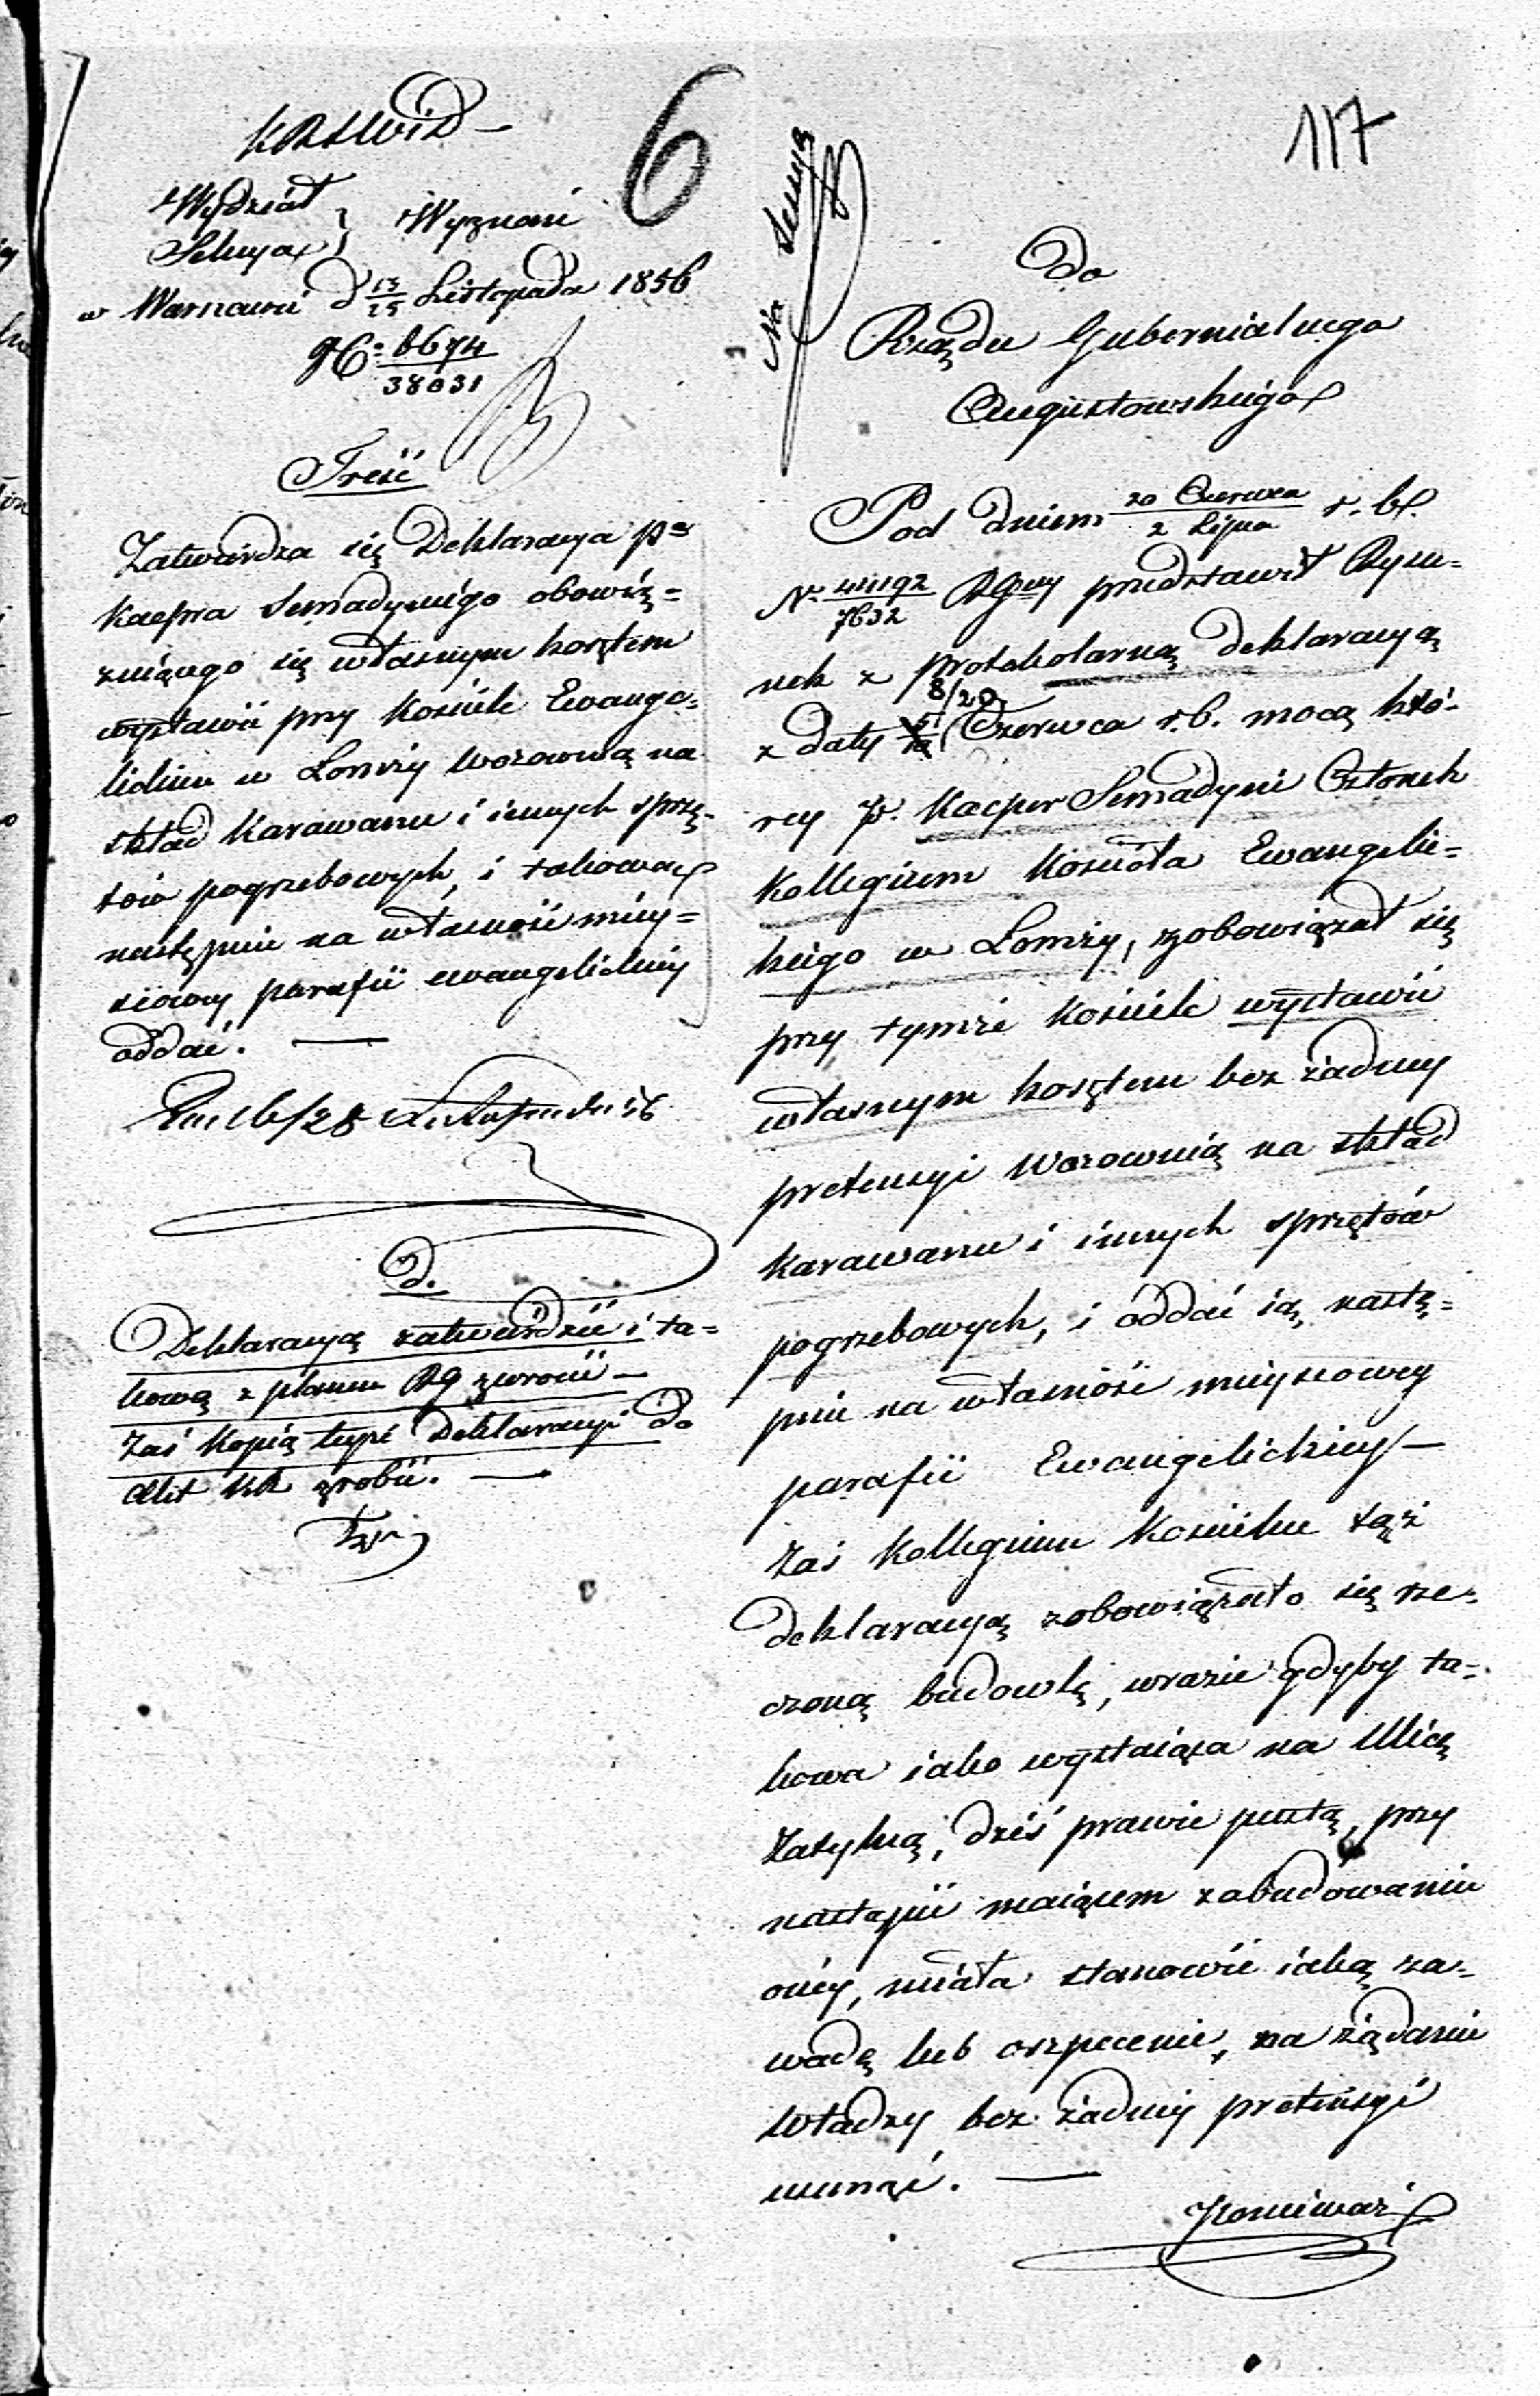 KRSWiD
6
117
Wydział
Sekcya } Wyznań
w Warszawie d 13/25 Listopada 1856
N: 6674/38031
Treść
Zatwierdza się Deklaracya pa
Kacpra Semadyniego obowią=
zuiącego się własnym kosztem
wystawić przy Kościele Ewange=
lickim w Łomży wozownią na
skład Karawanu i innych sprzę-
tów pogrzebowych, i takową
następnie na własność miey=
scowey parafii ewangelickiey
oddać. —
D.
Deklaracyą zatwierdzić i ta=
kową z planem RG zwrócić —
Zaś Kopią teyże Deklaracyi do
Akt KR zrobić. —
Do
Rządu Gubernialnego
Augustowskiego
Pod dniem 20 Czerwca/2 Lipca r. b.
N. 44192/7632 RGny przedstawił Rysu-
nek z protokolarną deklaracyą
z daty 8/20 Czerwca r.b. mocą któ-
rey P. Kacper Semadyni Członek
Kollegium Kościoła Ewangelic=
kiego w Łomży, zobowiązał się
przy tymże Kościele wystawić
własnym kosztem bez żadney
pretensyi Wozownią na skład
Karawanu i innych sprzętów
pogrzebowych, i oddać ią, nastę=
pnie na własność mieyscowey
parafii Ewangelickiey —
Zaś Kollegium Kościelne tąż
deklaracyą zobowiązało się rze-
czoną budowlę, wrazie gdyby ta-
kowa iako wystaiąca na Ulicę
Zatylną, dziś prawie pustą, przy
nastąpić maiącem zabudowaniu
oney, miała stanowić iaką za-
wadę lub oszpecenie, na żądanie
Władzy bez żadney pretensyi
usunąć. —